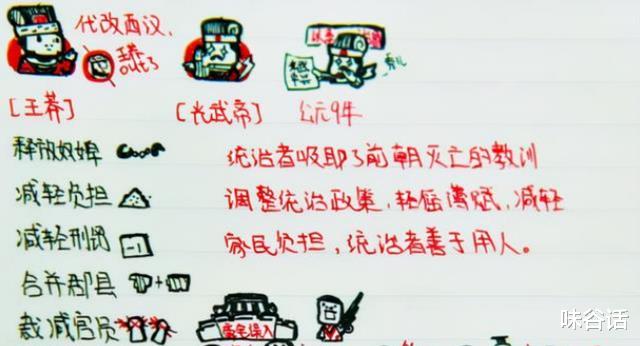 代改西汉,
[王莽]
[光武帝]
公元9年
释放奴婢
统治者吸取了前朝灭亡的教训
减轻负担
调整统治政策,轻徭薄赋,减轻
减轻刑罚
-1
农民负担,统治者善于用人。
合并郡县
+
裁减官员
味谷话